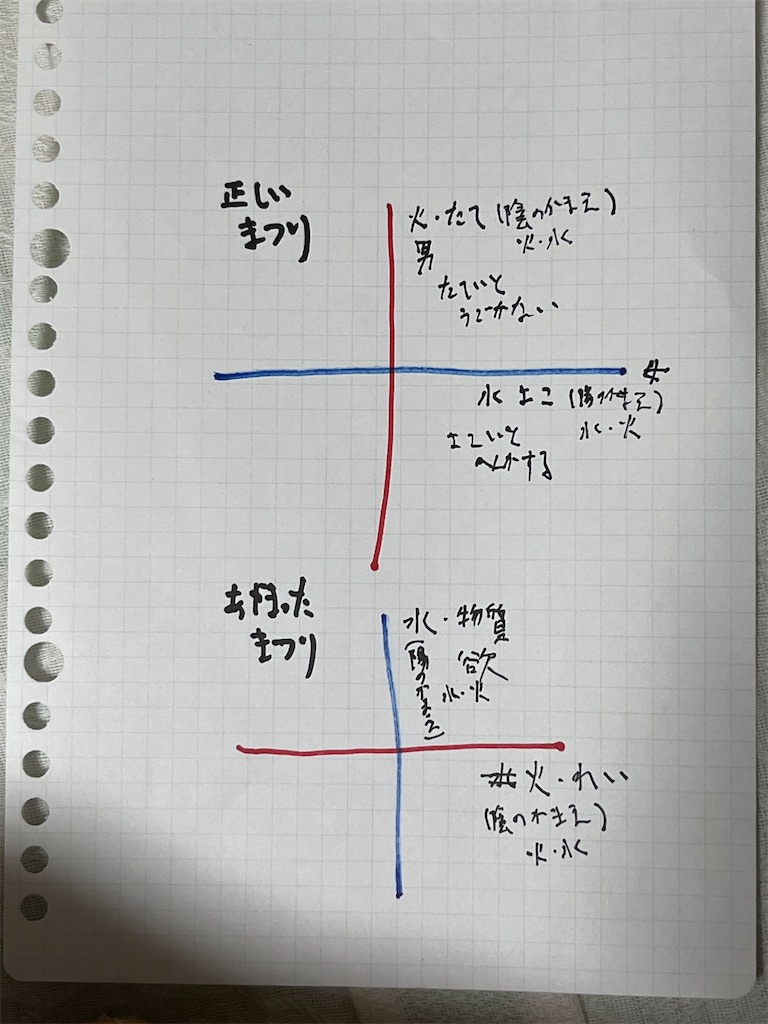 正しい
まつり
火・たて(陰のかまえ)
火・水
男
たていと
うごかない
女
水 よこ(陽のかまえ)
水・火
よこいと
へんかする
まつり
水・物質
欲
(陽のかまえ)
水・火
火・れい
(陰のかまえ)
火・水